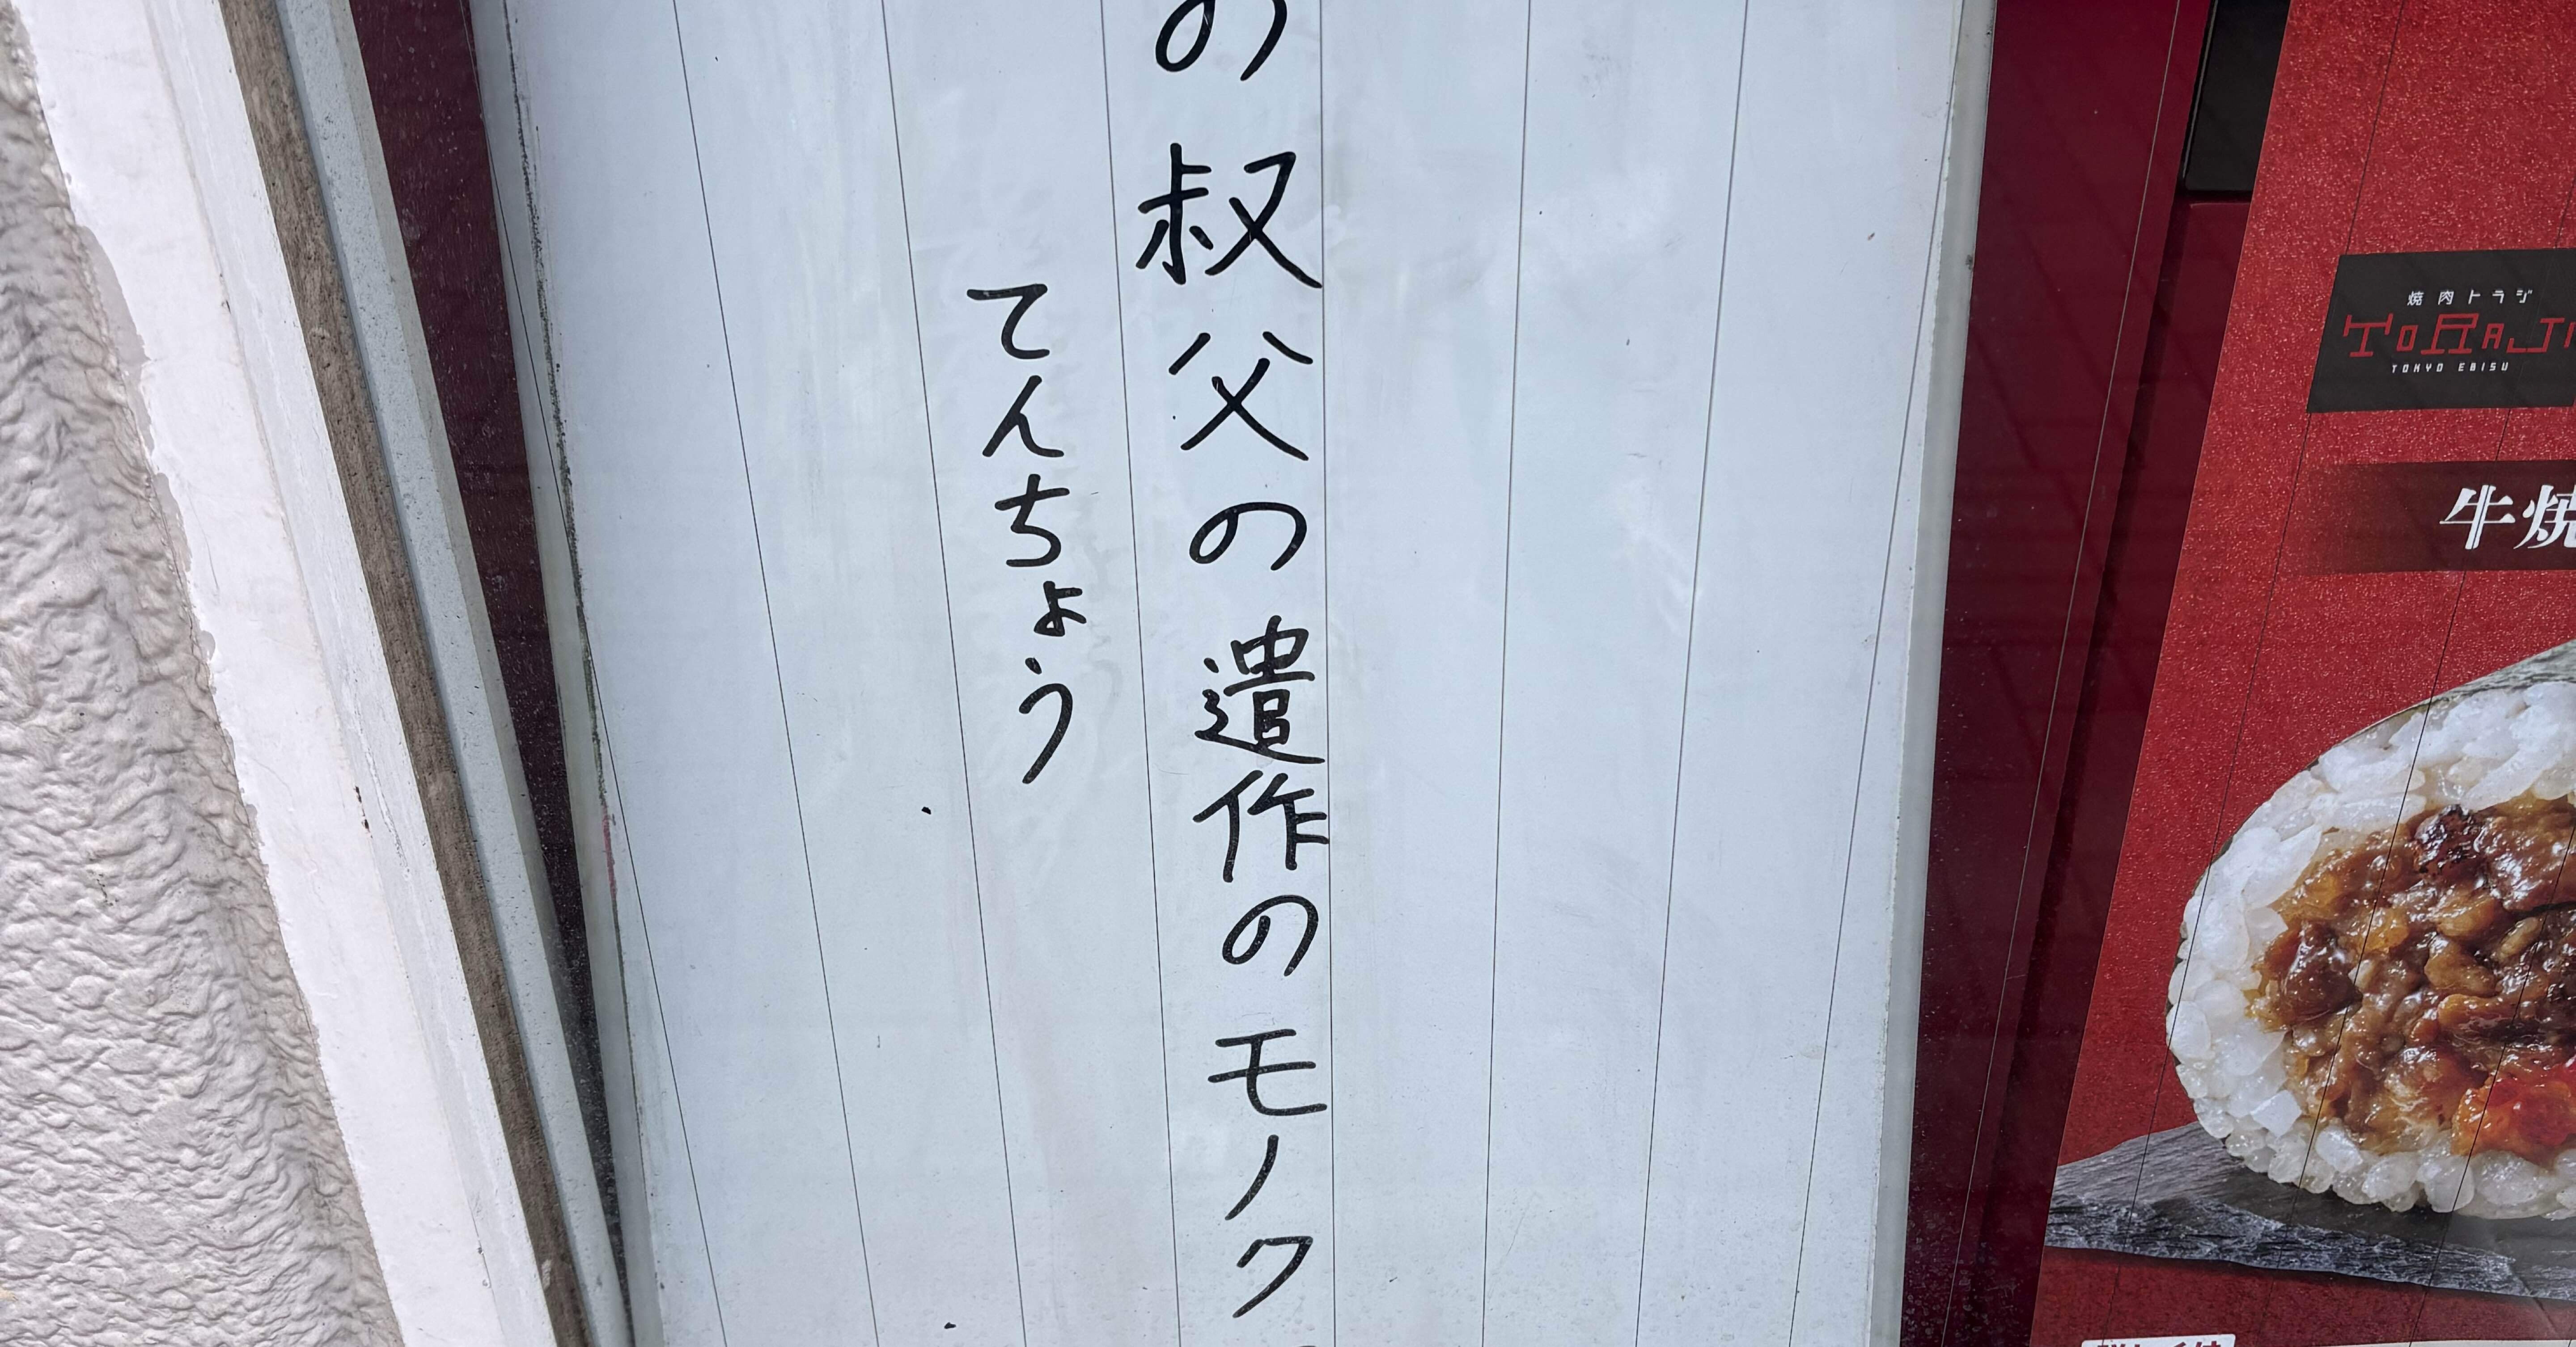 の叔父の遺作のモノク
てんちょう
焼肉トラジ
TORAJI
TOKYO EBISU
牛焼